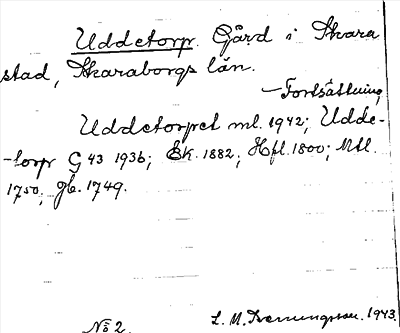 Uddetorp. Gård i Skara
stad, Skaraborgs län.
Fortsättning,
Uddetorpet ml. 1942; Udde-
-torp G 43 1936; Ek. 1882; Hfl. 1800; Mtl.
1750; Jb. 1749.
No 2. L. M. 1943.